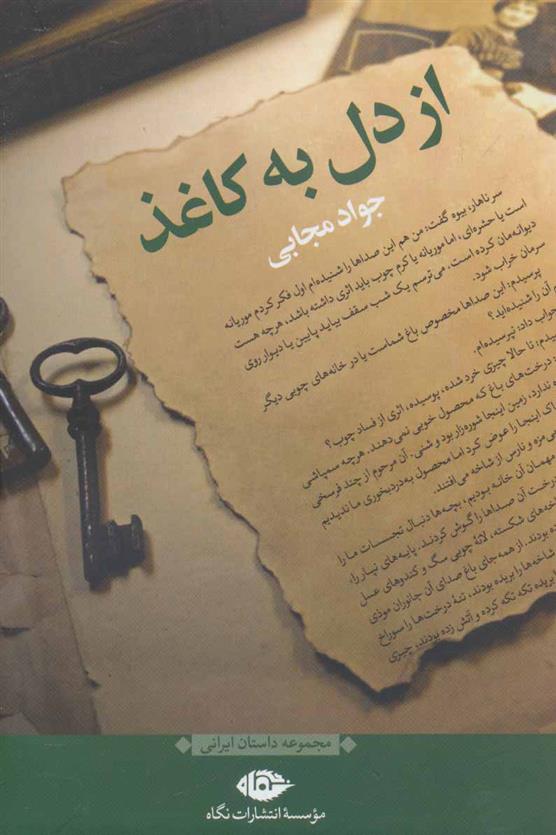 از دل به کاغذ
جواد مجابی
سر ناهار، بیوه گفت: من هم این صداها را شنیده‌ام اول فکر کردم موریانه
است یا حشره‌ای، اما موریانه یا کرم چوب باید اثری داشته باشد، هرچه هست
دیوانه‌مان کرده است، می‌ترسم یک شب سقف بیاید پایین یا دیوار روی
سرمان خراب شود.
پرسیدم: این صداها مخصوص باغ شماست یا در خانه‌های چوبی دیگر
هم آن را شنیده‌اید؟
جواب داد: نپرسیده‌ام.
پرسیدم: تا حالا چیزی خرد شده، پوسیده، اثری از فساد چوب؟
درخت‌های باغ که محصول خوبی نمی‌دهند. هرچه سمپاشی
ندارد، زمین اینجا شوره‌زار بود و شنی. آن مرحوم از چند فرسخی
اینجا را عوض کرد اما محصول به‌دردبخوری ما ندیدیم
بی‌مزه و نارس از شاخه می‌افتند.
مهمان آن خانه بودیم، بچه‌ها دنبال تجسسات ما را
درخت آن صداها را گوش کردند. پایه‌های نپار را،
شاخه‌های شکسته، لانهٔ چوبی سگ و کندوهای عسل
بودند. از همه جای باغ صدای آن جانوران موذی
شاخه‌ها را بریده بودند، تنهٔ درخت‌ها را سوراخ
بریده تکه تکه کرده و آتش زده بودند، چیزی
مجموعه داستان ایرانی
مؤسسهٔ انتشارات نگاه